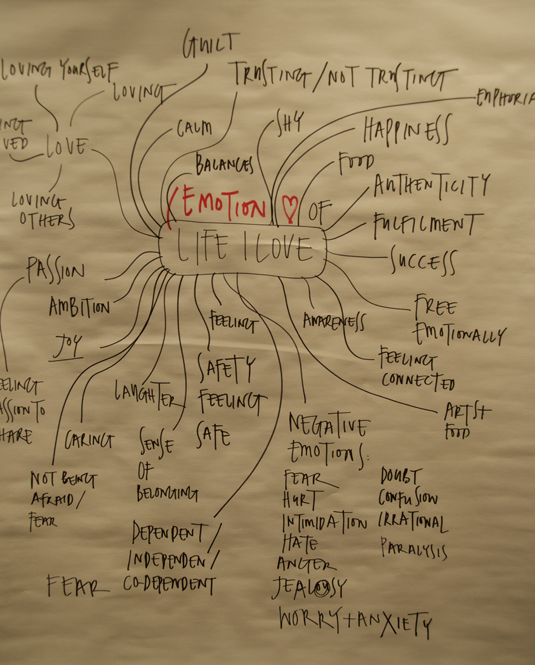 GUILT
LOVING YOURSELF
LOVING
TRUSTING / NOT TRUSTING
EUPHORIA
CALM
SHY
HAPPINESS
LOVE
BALANCES
FOOD
LOVING
OTHERS
(EMOTION ♡ OF
AUTHENTICITY
FULFILMENT
LIFE I LOVE
SUCCESS
PASSION
AMBITION
JOY
FEELING
AWARENESS
FREE
EMOTIONALLY
FEELING
CONNECTED
LAUGHTER
SAFETY
FEELING
SAFE
ARTST
FOOD
CARING
SENSE
OF
BELONGING
NOT BEING
AFRAID /
FEAR
NEGATIVE
EMOTIONS:
FEAR
HURT
INTIMIDATION
HATE
ANGER
JEALOSY
WORRY + ANXIETY
DOUBT
CONFUSION
IRRATIONAL
PARALYSIS
DEPENDENT /
INDEPENDEN /
CO-DEPENDENT
FEAR